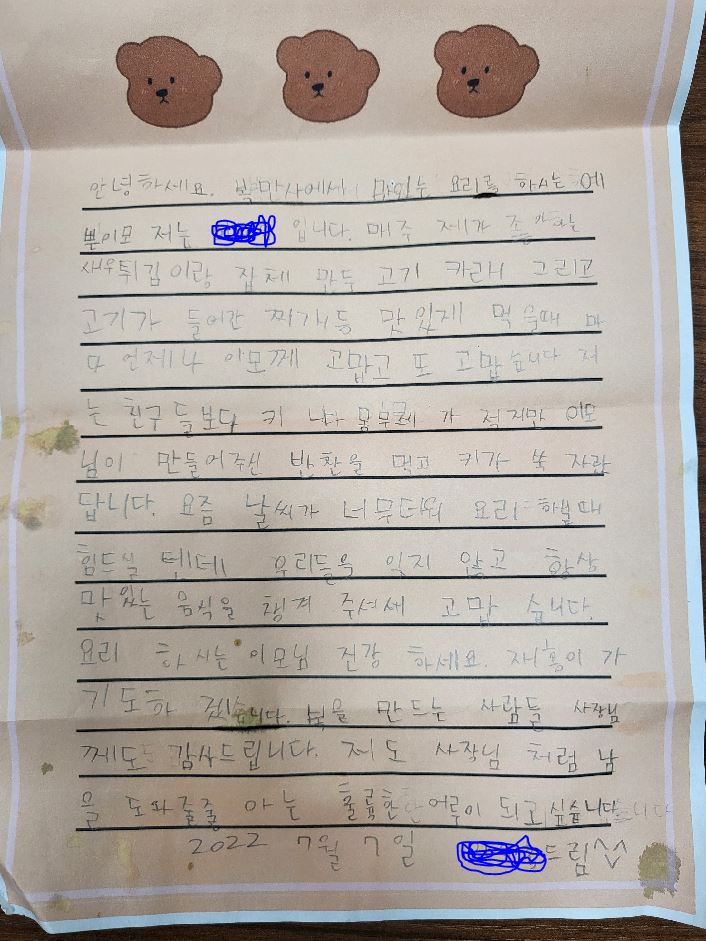 안녕하세요. 복만사에서 맛있는 요리를 하시는 예
쁜이모 저는 입니다. 매주 제가 좋아하는
새우튀김이랑 잡체 만두 고기 카래 그리고
고기가 들어간 찌개등 맛있게 먹을때 마
다 언제나 이모께 고맙고 또 고맙습니다 저
는 친구들보다 키 나 몸무게 가 적지만 이모
님이 만들어주신 반찬을 먹고 키가 쑥 자람
답니다. 요즘 날씨가 너무더워 요리 하실때
힘드실 텐데 우리들을 잊지 않고 항상
맛있는 음식을 챙겨 주셔서 고맙 습니다.
요리 하시는 이모님 건강 하세요. 재홍이 가
기도하 겠습니다. 복을 만드는 사람들 사장님
께도 감사드립니다. 저도 사장님 처럼 남
을 도와줄줄 아는 훌륭한 어루이 되고싶습니다
2022 7월 7일 드림^^